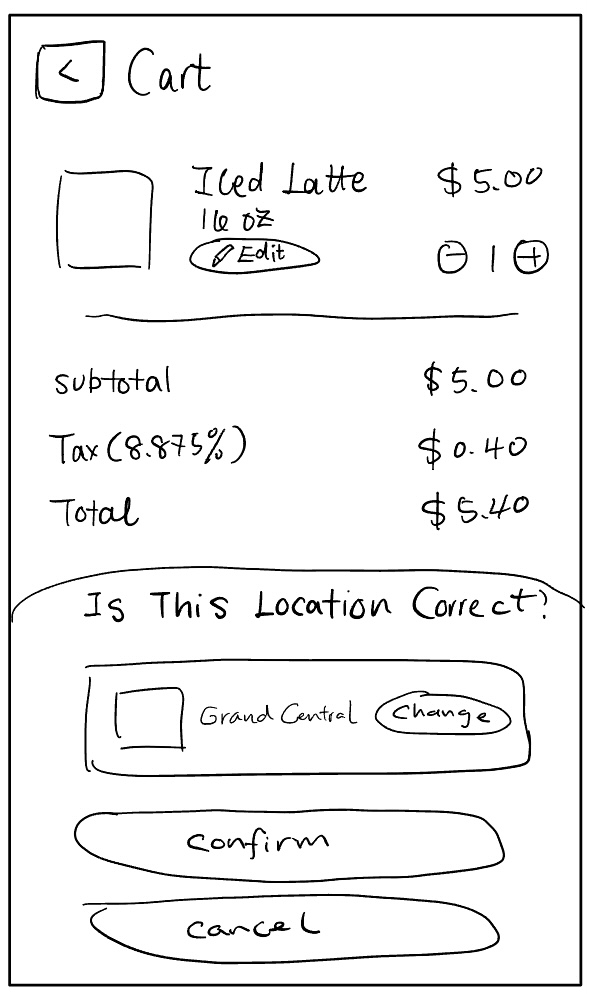 < Cart
Iced Latte $5.00
16 oz
Edit - 1 +
subtotal $5.00
Tax (8.875%) $0.40
Total $5.40
Is This Location Correct?
Grand Central Change
confirm
cancel